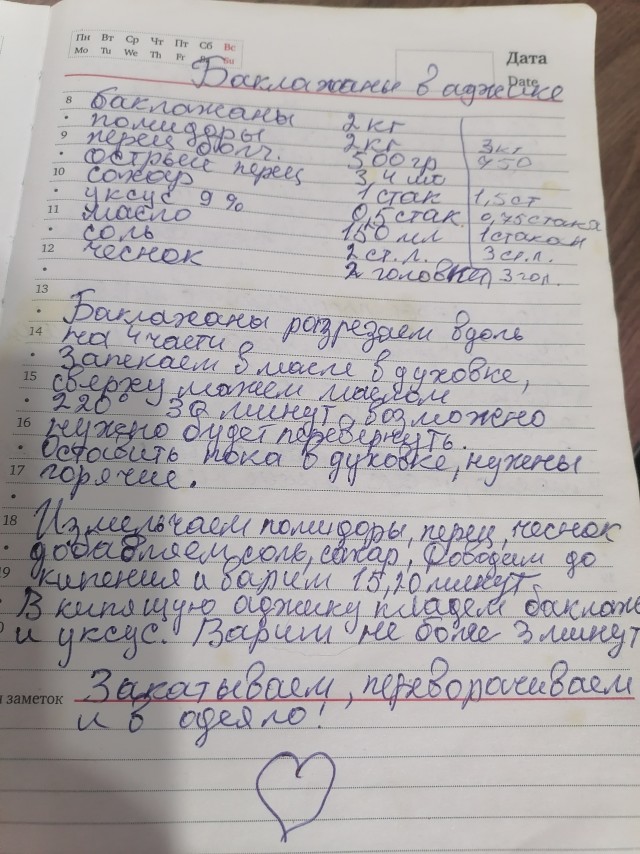 Пн Вт Ср Чт Пт Сб Вс
Mo Tu We Th Fr Su
Дата
Date
Баклажаны в аджике
8 баклажаны 2 кг
помидоры 2 кг 3 кг
9 перец болг. 500 гр 750
острый перец 3,4 шт
10 сахар 1 стак 1,5 ст
уксус 9% 0,5 стак. 0,75 стакана
11 масло 150 мл 1 стакан
соль 2 ст.л. 3 ст.л.
12 чеснок 2 головки 3 гол.
13
Баклажаны разрезаем вдоль
14 на 4 части
Запекаем в масле в духовке,
15 сверху мажем маслом
220° 30 минут, возможно
16 нужно будет перевернуть.
Оставить пока в духовке, нужны
17 горячие.
18 Измельчаем помидоры, перец, чеснок
добавляем соль, сахар, доводим до
19 кипения и варим 15,20 минут
В кипящую аджику кладем баклаж
и уксус. Варим не более 3 минут
заметок Закатываем, переворачиваем
и в одеяло!